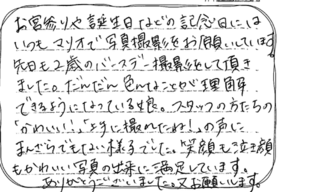 お宮参りや誕生日などの記念日には
いつもマリオで写真撮影をお願いしています。
先日も2歳のバースデー撮影をして頂き
ました。だんだん色んなことが理解
できるようになっている娘。スタッフの方たちの
「かわいい!」「上手に撮れたね!」の声に
まんざらでもない様子でした。笑顔も泣き顔
もかわいい写真の出来に満足しています。
ありがとうございました。又お願いします。